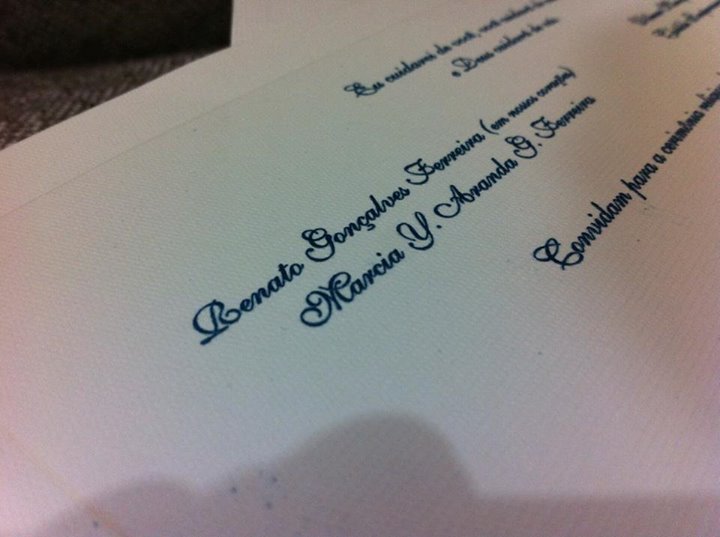 Eu cuidarei de você, você cuidará de
e Deus cuidará de nós
Renato Gonçalves Ferreira (em nossos corações)
Marcia Y. Aranda G. Ferreira
Convidam para a cerimônia